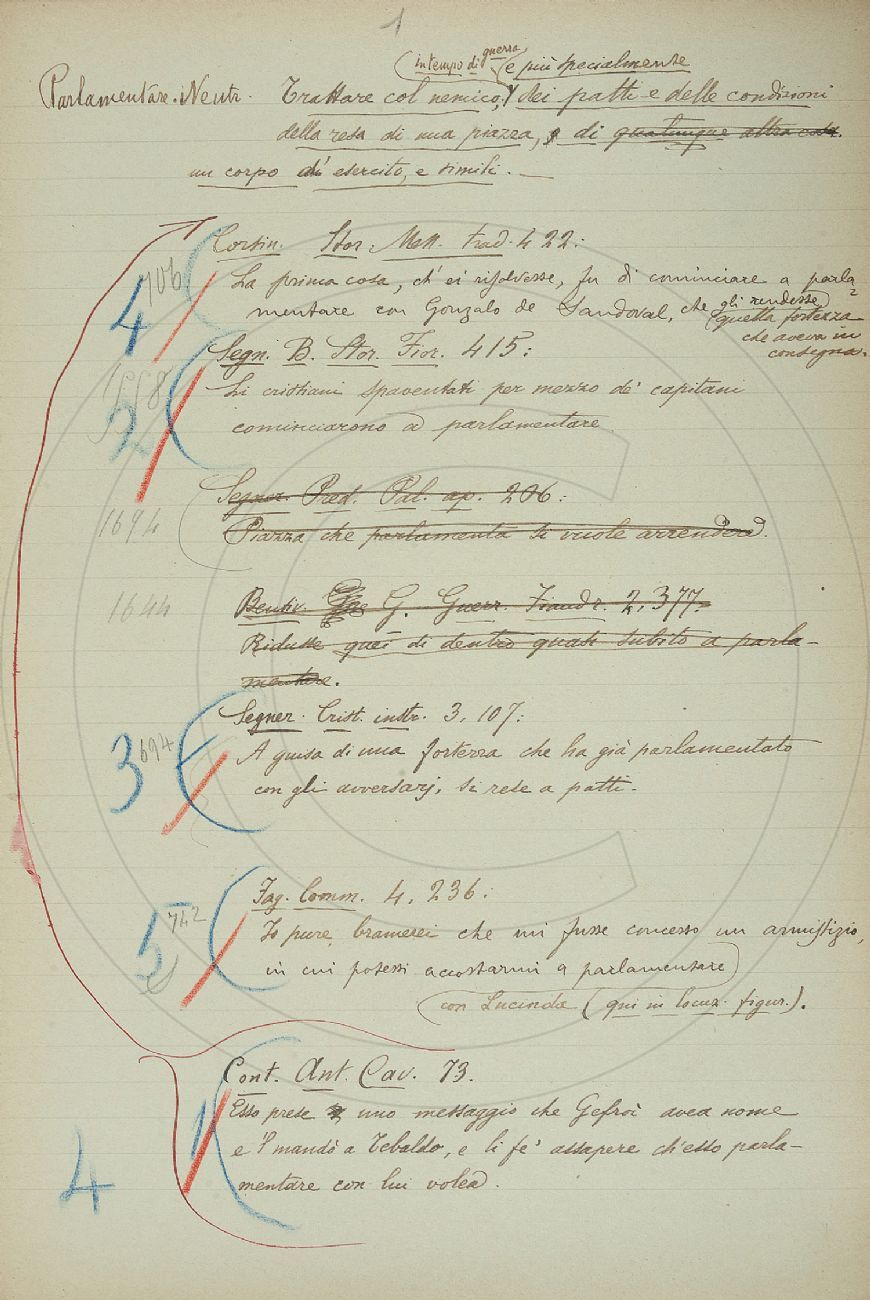 1
in tempo di guerra
e più specialmente
Parlamentare. Neutr. Trattare col nemico, dei patti e delle condizioni
della resa di una piazza, di qualunque altra cosa.
un corpo di esercito, e simili. —
Corsin. Stor. Mess. trad. 422:
706
4
La prima cosa, ch'ei risolvesse, fu di cominciare a parla-
mentare con Gonzalo de Sandoval, che gli rendesse
quella fortezza
che aveva in
consegna.
Segn. B. Stor. Fior. 415:
1558
2
Li cristiani spaventati per mezzo de' capitani
cominciarono a parlamentare.
Segner. Pred. Pal. ap. 206:
1694
Piazza che parlamenta si vuole arrendere.
1644
Bentiv. G. Guerr. Fiandr. 2, 377.
Ridusse quei di dentro quasi subito a parla-
mentare.
Segner. Crist. instr. 3, 107:
694
3
A guisa di una fortezza che ha già parlamentato
con gli avversarj, si rese a patti.
Fag. Comm. 4, 236:
742
5
Io pure, bramerei che mi fusse concesso un armistizio,
in cui potessi accostarmi a parlamentare
con Lucinda (qui in locuz. figur.).
Cont. Ant. Cav. 73.
1
Esso prese uno messaggio che Gefroi avea nome
e 'l mandò a Tebaldo, e li fe' assapere ch'esso parla-
4
mentare con lui volea.